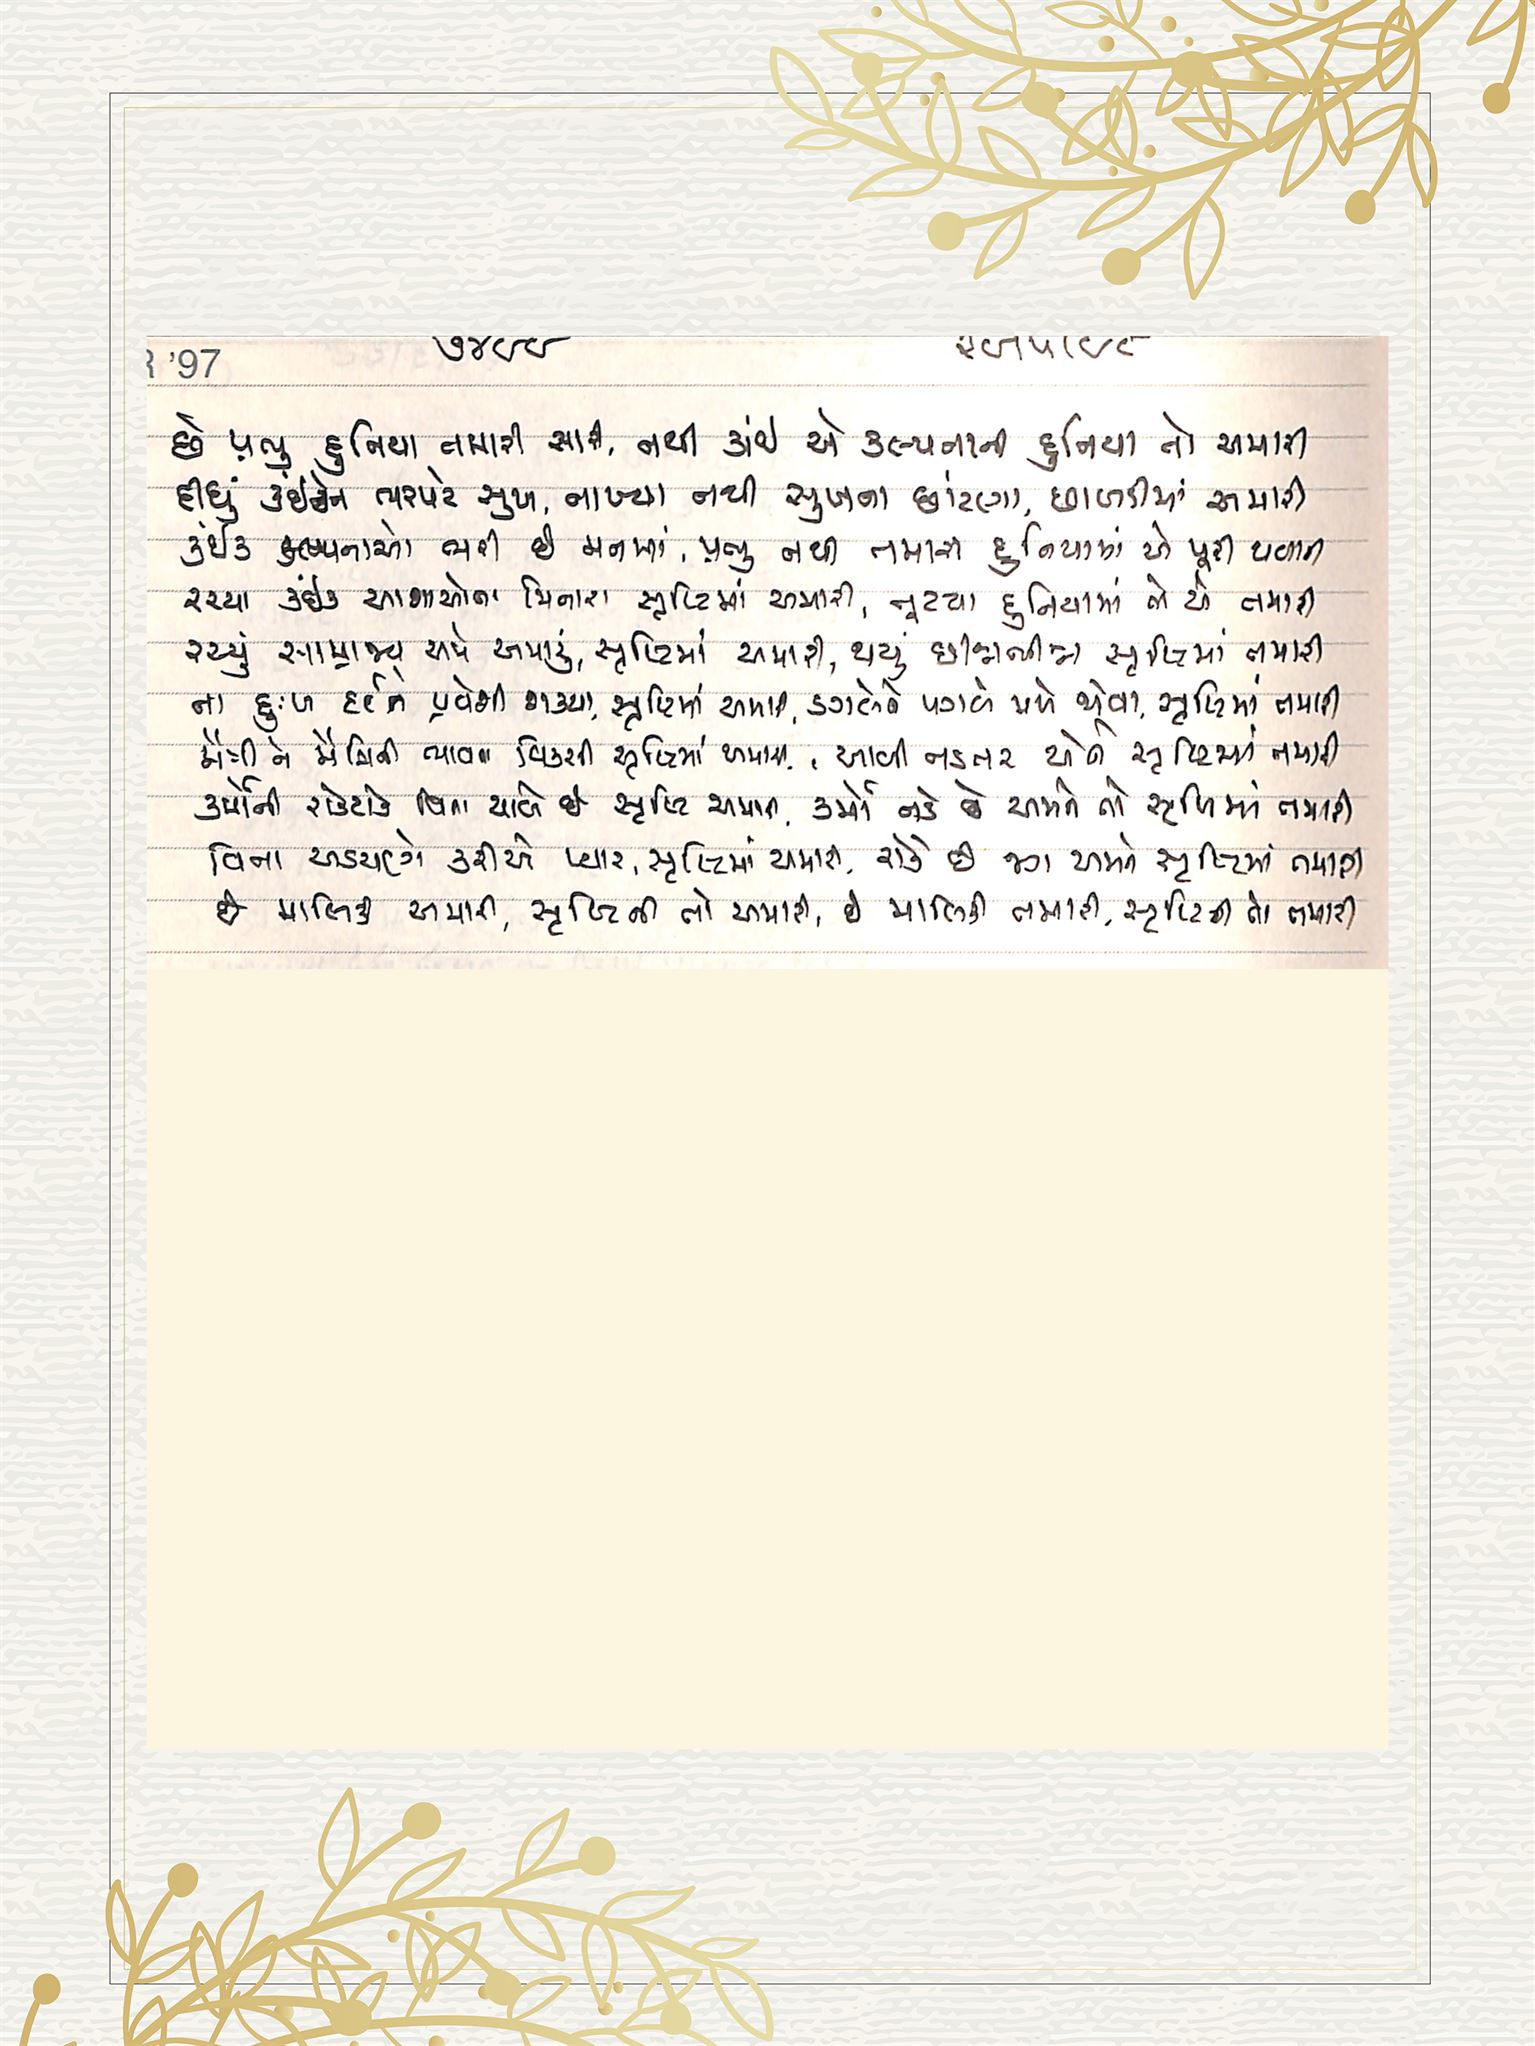 '97
છે પ્રભુ દુનિયા તમારી સારી, નથી કાંઈ એ કલ્પનાની દુનિયા તો અમારી
દીધું કંઈકને ભરપટે સુખ, નાખ્યા નથી સુખના છાંટણા, છાબડીમાં અમારી
કંઈક કલ્પનાઓ ભરી છે મનમાં, પ્રભુ નથી તમારી દુનિયામાં એ પૂરી થવાની
રચ્યા કંઈક આશાઓના મિનારા સૃષ્ટિમાં અમારી, તૂટયા દુનિયામાં તો એ તમારી
રચ્યું સામ્રાજ્ય અમે અમારું, સૃષ્ટિમાં અમારી, થયું છીન્નભીન્ન સૃષ્ટિમાં તમારી
ના દુઃખ દર્દને પ્રવેશી શક્યા, સૃષ્ટિમાં અમારી, ડગલેને પગલે મળે જોવા, સૃષ્ટિમાં તમારી
મૈત્રી ને મૈત્રિની ભાવના વિકસી સૃષ્ટિમાં અમારી, આવી નડતર એને સૃષ્ટિમાં તમારી
કર્મોની રોકટોક વિના ચાલે છે સૃષ્ટિ અમારી, કર્મો નડે છે અમને તો સૃષ્ટિમાં તમારી
વિના અડચણે કરીએ પ્યાર, સૃષ્ટિમાં અમારી, રોકે છે જગ અમને સૃષ્ટિમાં તમારી
છે માલિકી અમારી, સૃષ્ટિની તો અમારી, છે માલિકી તમારી, સૃષ્ટિની તો તમારી